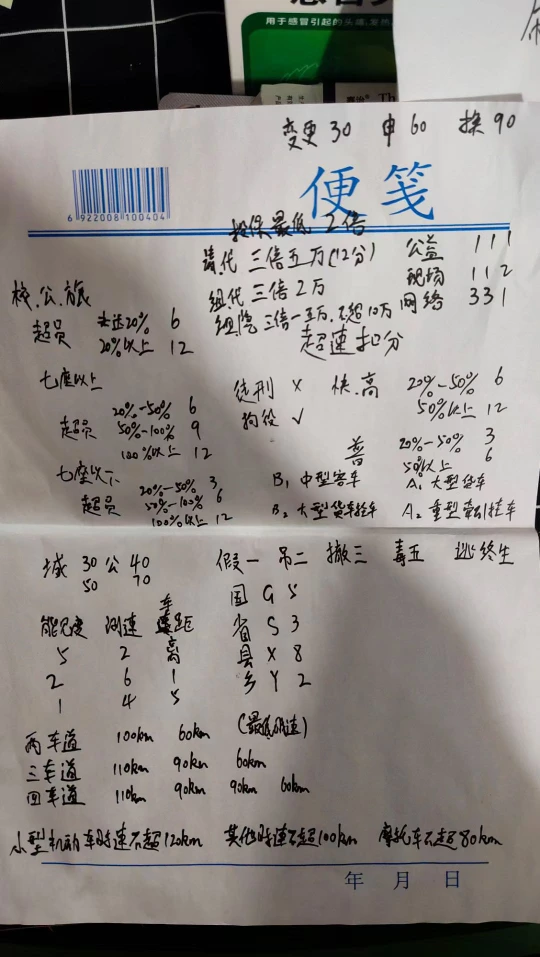 用于感冒引起的头痛,发热
变更30 申60 换90
便笺
6 922008 100404
投保最低 2倍
请代 三倍五万(12分) 公益 1 1 1
组代 三倍2万 现场 1 1 2
组院 三倍一五万,不超10万 网络 3 3 1
校.公.旅
超员 未达20% 6
20%以上 12
超速扣分
七座以上
超员 20%-50% 6
50%-100% 9
100%以上 12
徒刑 ×
拘役 √
快.高 20%-50% 6
50%以上 12
普 20%-50% 3
50%以上 6
七座以下
超员 20%-50% 3
50%-100% 6
100%以上 12
B1 中型客车 A1 大型货车
B2 大型货车 A2 重型牵引挂车
城 30 公 40
50 70
假一 吊二 撤三 毒五 逃终生
国 G 5
省 S 3
县 X 8
乡 Y 2
能见度 测速 车距离
5 2
2 6 1
1 4 5
两车道 100km 60km (最低时速)
三车道 110km 90km 60km
四车道 110km 90km 90km 60km
小型机动车时速不超120km 其他时速不超100km 摩托车不超80km
年 月 日